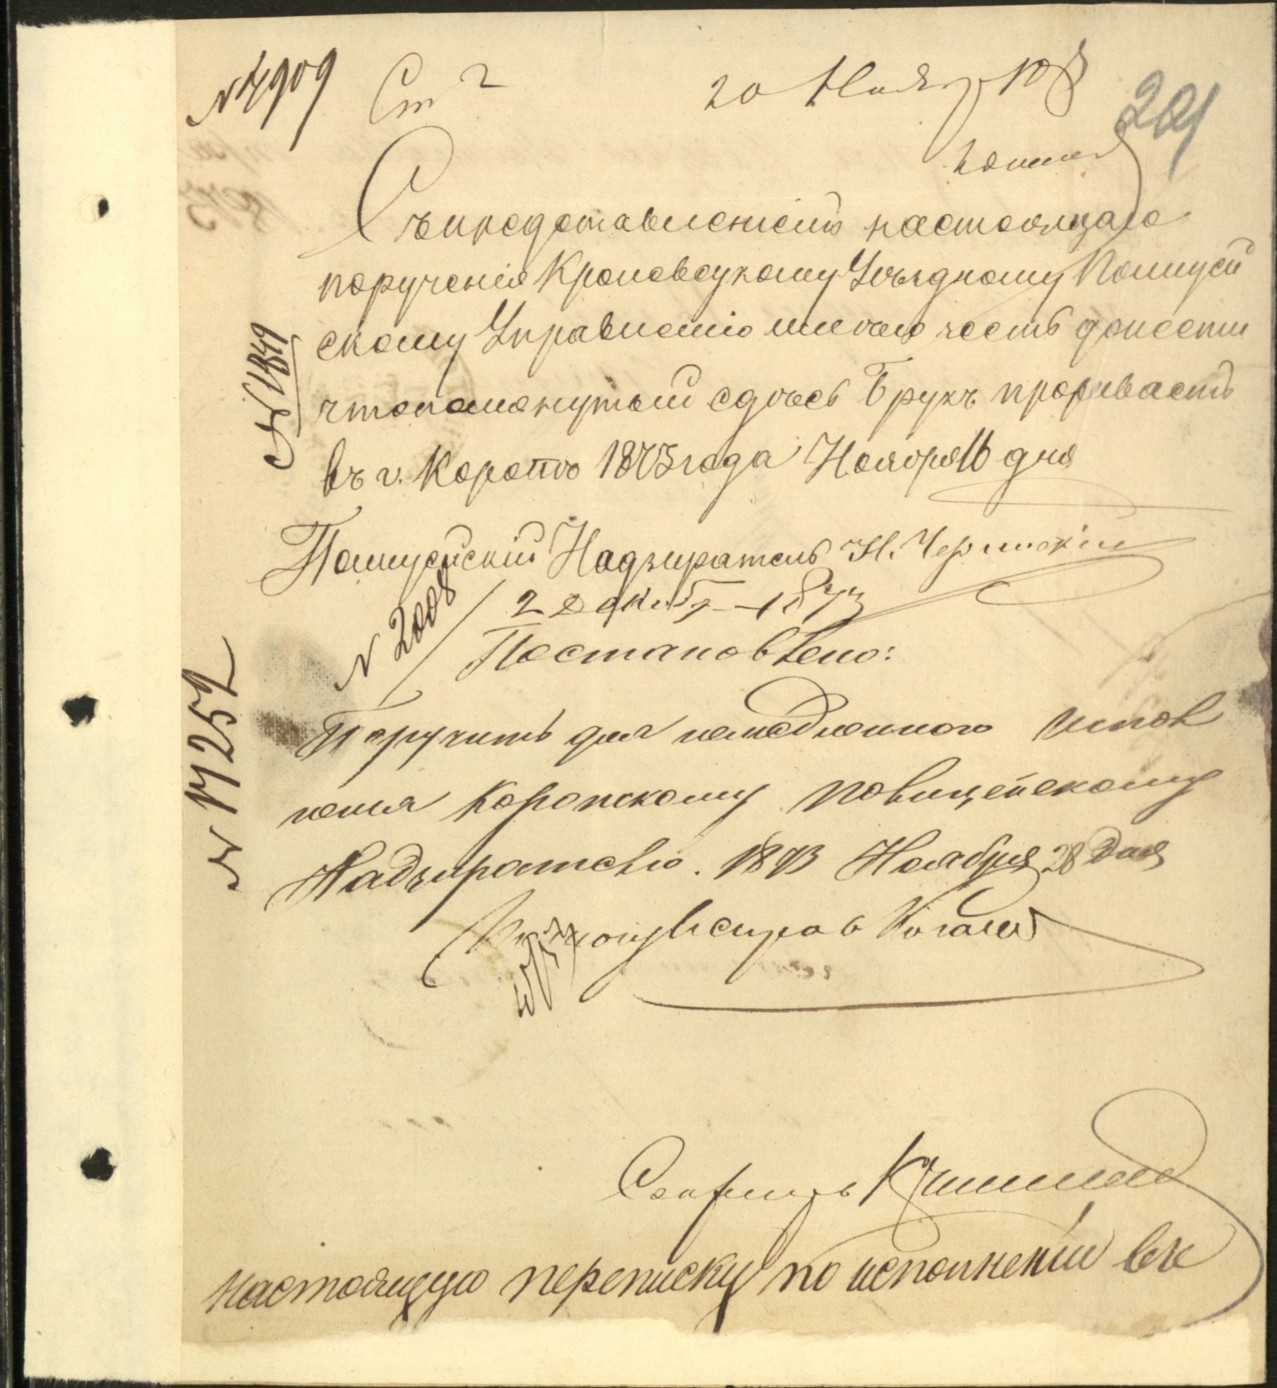 № 4909 Ст 2 20 Нояб 1873
201
Съ представленіемъ настоящаго
порученія Кролевецкому Уѣздному Полицей
скому Управленію имѣю честь донести
что помянутый сдѣсь Брукъ проживаетъ
въ г. Коропѣ 1873 года Ноября 16 дня
№ 1849
Полицейскій Надзиратель Н.
№ 2008
2 Декаб 1873
Постановлено:
№ 17252
Поручить для немедленнаго исполн
ненія Коропскому Полицейскому
Надзирателю. 1873 Ноября 28 дня
Секретарь
Настоящую переписку по исполненіи въ